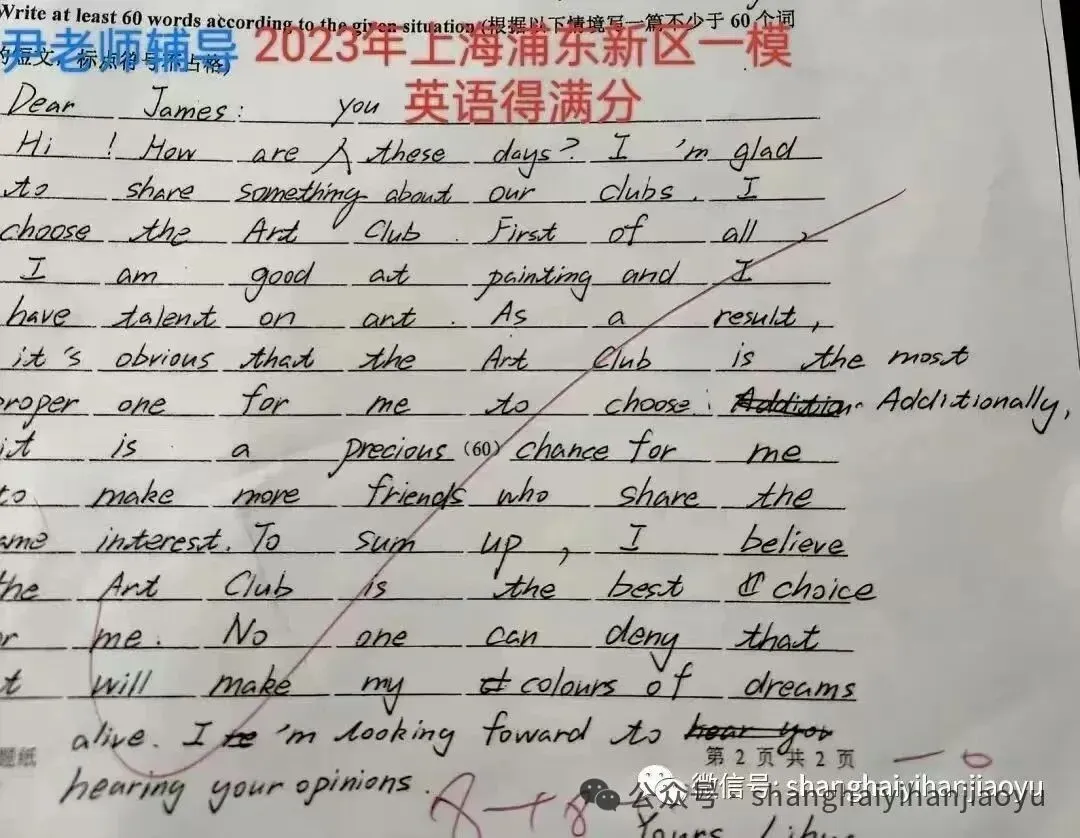 Write at least 60 words according to the given situation (根据以下情境写一篇不少于 60 个词
的短文，标点符号不占格)
尹老师辅导 2023年上海浦东新区一模
英语得满分
Dear James: you
Hi ! How are 人 these days? I 'm glad
to share something about our clubs. I
choose the Art Club. First of all,
I am good at painting and I
have talent on art. As a result,
it's obvious that the Art Club is the most
roper one for me to choose. Addition Additionally,
it is a precious (60) chance for me
to make more friends who share the
ame interest. To sum up, I believe
the Art Club is the best choice
r me. No one can deny that
t will make my colours of dreams
alive. I 'm looking foward to hear you
题纸 第 2 页 共 2 页
hearing your opinions.
8+8 -0
微信号: shanghaiyihanjiaoyu
公众号 shanghaiyihanjiaoyu
Yours